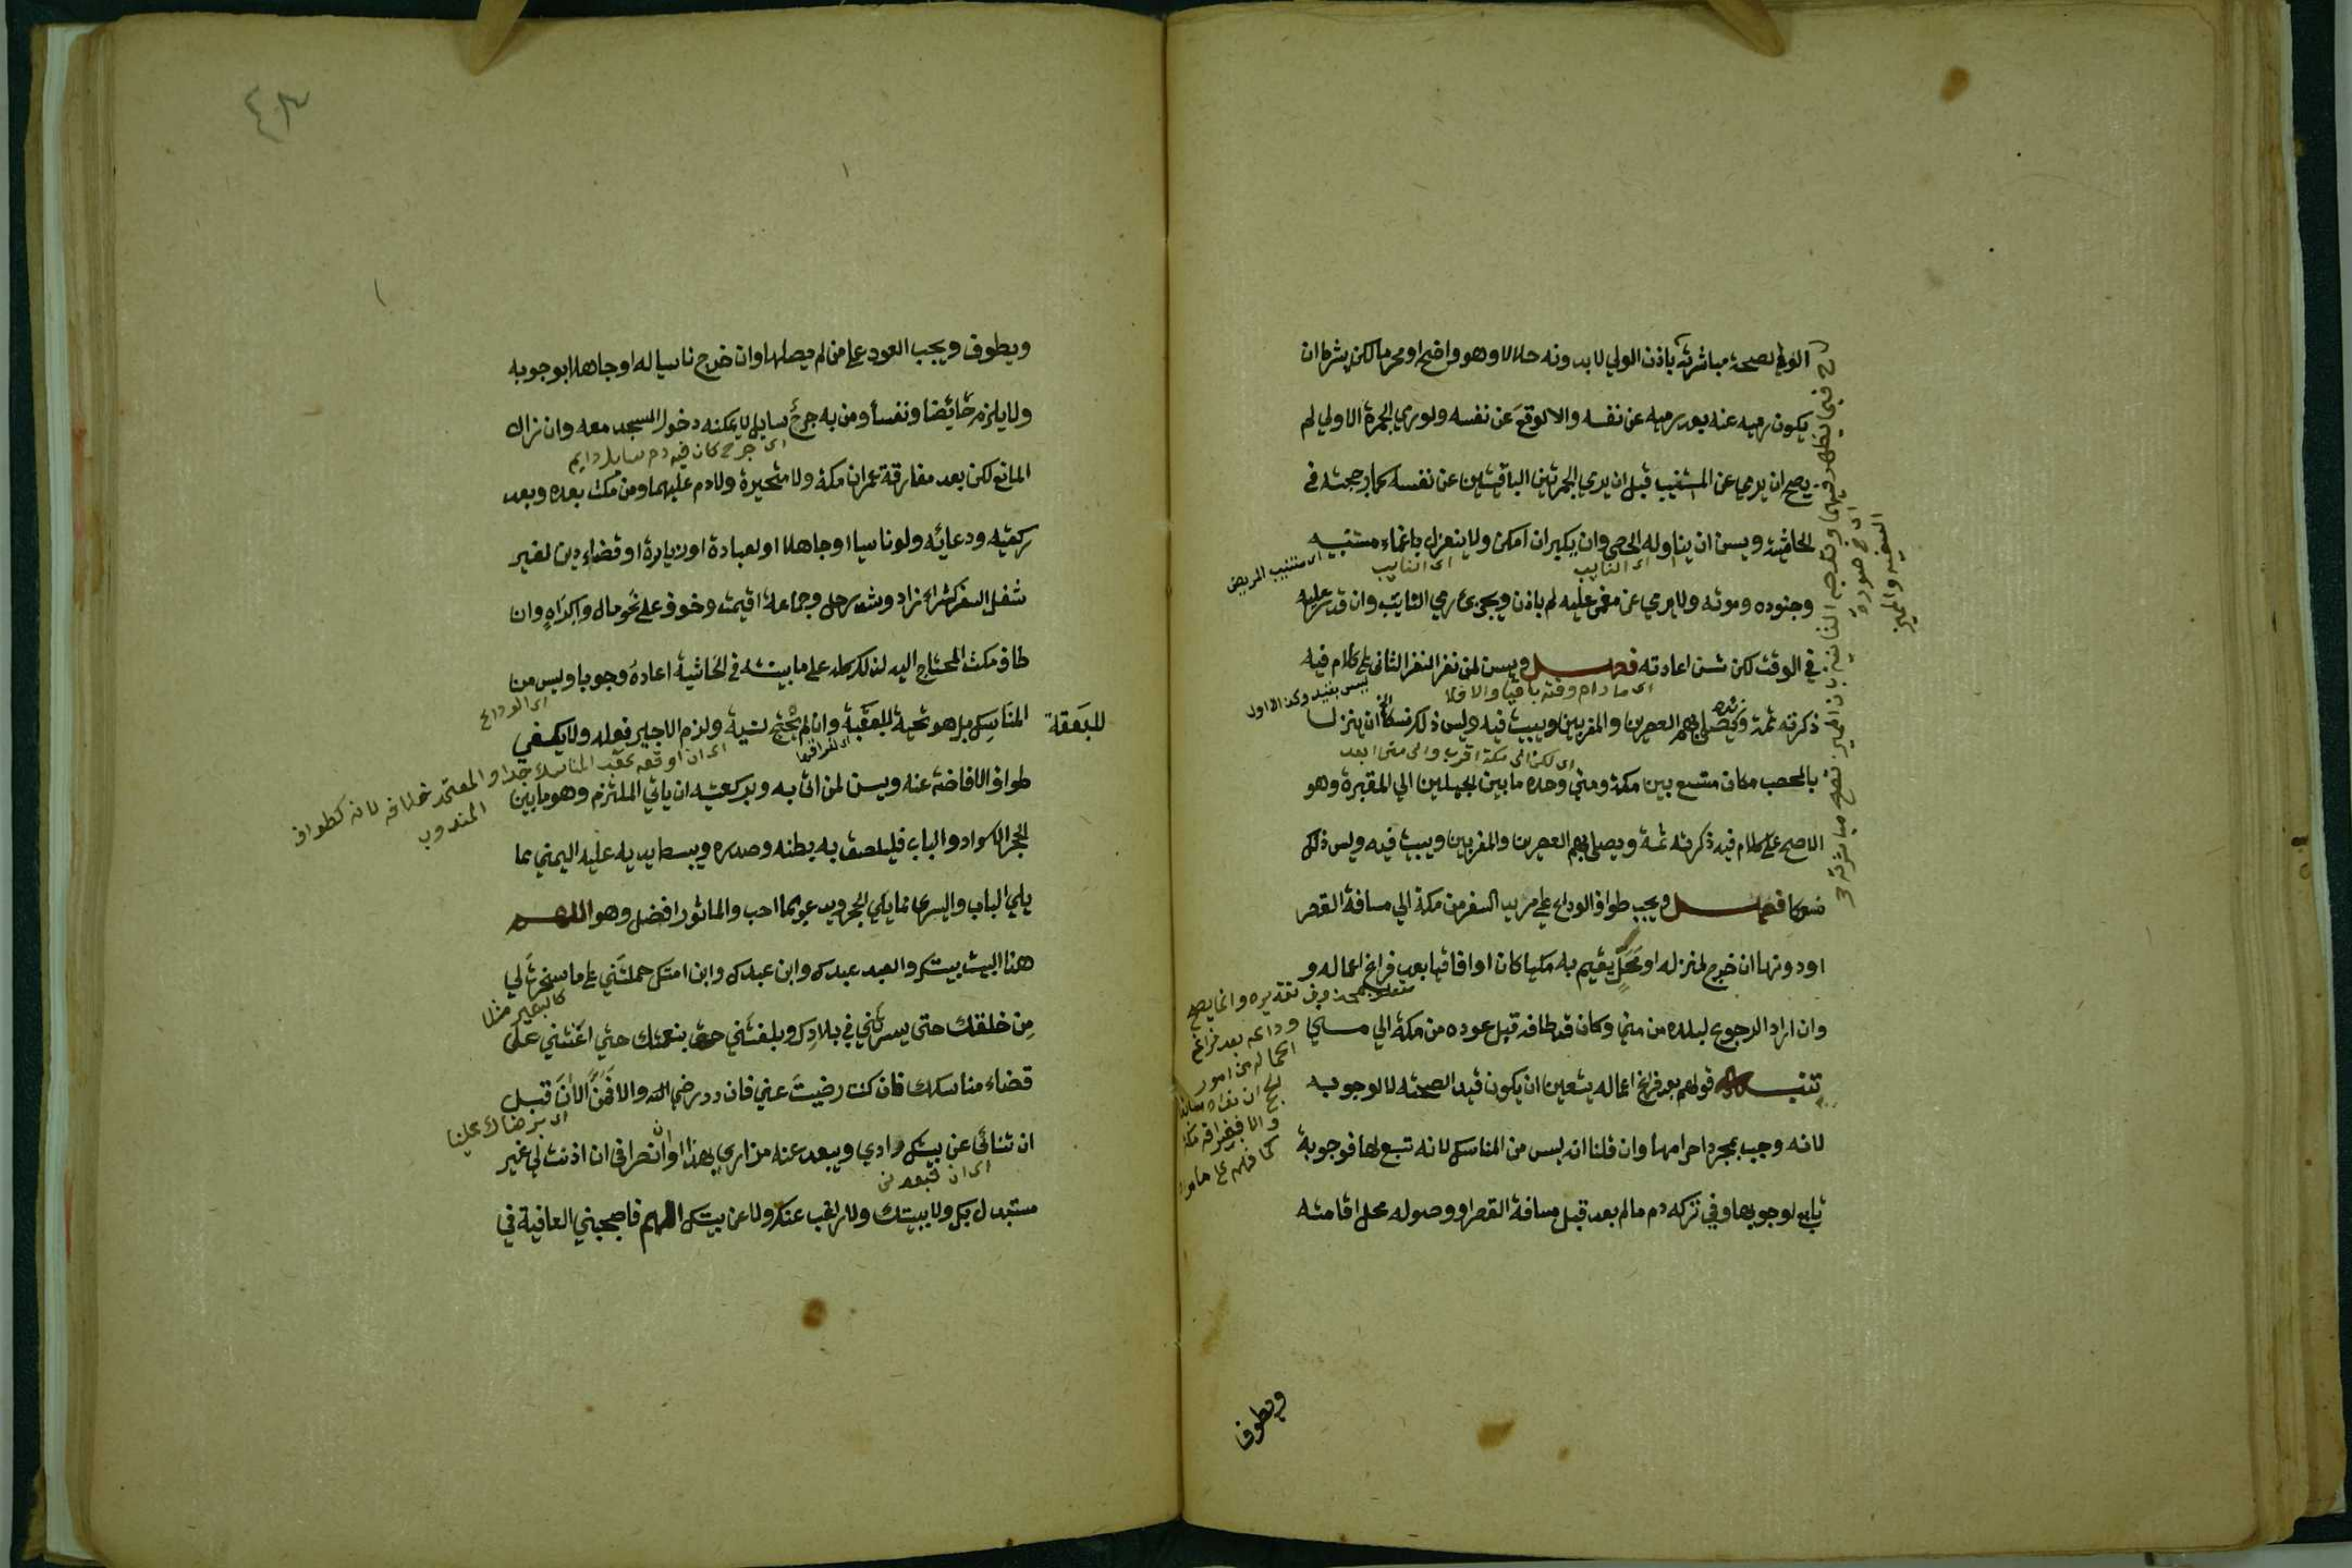 الولي لصحة مباشرته باذن الولي لا بدونه حلالا وهو واضح او محرما لكن بشرط ان
يكون رميه عنه بعد رميه عن نفسه والا لوقع عن نفسه ولو رمي الجمرة الاولي لم
يصح ان يرمي عن المستنيب قبل ان يرمي الجمرتين الباقيتين عن نفسه كما رجحته في
الحاشية ويسن ان يناوله الحصي وان يكبر ان امكن ولا ينعزل باغماء مستنيبه
اي النايب
اي النايب
اي مستنيب المريض
وجنونه وموته ولا يرمي عن مغمي عليه لم ياذن ويجزي رمي النايب وان قدر عليه
في الوقت لكن تسن اعادته فصل ويسن لمن نفر النفر الثاني علي كلام فيه
اي ما دام وقته باقيا والا فلا
ليس بقيد وكذا الاول
ذكرته ثمة ويصلي بهم العصرين والمغربين ويبيت فيه وليس ذلك نسكا ان ينزل
اي لكن الي مكة اقرب والي مني ابعد
بالمحصب مكان متسع بين مكة ومني وحده ما بين الجبلين الي المقبرة وهو
الاصح علي كلام فيه ذكرته ثمة ويصلي بهم العصرين والمغربين ويبيت فيه وليس ذلك
نسكا فصل ويجب طواف الوداع علي مريد السفر من مكة الي مسافة القصر
او دونها ان خرج لمنزله او محل يقيم به مكيا كان او افاقيا بعد فراغ اعماله و
وان اراد الرجوع لبلده من مني وكان قد طافه قبل عوده من مكة الي مني
تنبيه قولهم بعد فراغ اعماله يتعين ان يكون قيدا لصحته لا لوجوبه
لانه وجب بمجرد احرامها وان قلنا انه ليس من المناسك لانه تبع لها فوجوبه
تابع لوجوبها وفي تركه دم ما لم يعد قبل مسافة القصر او وصوله محل اقامته
متعلق بمحذوف تقديره وانما يصح
وداعه بعد فراغ
اعماله من امور
كما فهم علي ما مر
السفيه والمميز
ويطوف
٤٣
ويطوف ويجب العود علي من لم يصلها وان خرج ناسيا له او جاهلا بوجوبه
ولا يلزم حائضا ونفسأ ومن به جرح سايل لا يمكنه دخول المسجد معه وان زال
اي جرح كان فيه دم سايل دايم
المانع لكن بعد مفارقة عمران مكة ولا متحيرة ولا دم عليهما ومن مكث بعده وبعد
ركعتيه ودعائه ولو ناسيا او جاهلا او لعيادة او زيارة او قضاء دين لغير
شغل السفر كشراء زاد وشد رحل وجماعة اقيمت وخوف علي نحو مال واكراه وان
طاف مكث المحتاج اليه لذلك كله علي ما بينته في الحاشية اعاده وجوبا وليس من
اي الوداع
المناسك بل هو تحية للبقعة وان لم تحتج لنية ولزم الاجير فعله ولا يكفي
للبقعة
اي ان اوقعه عقب المناسك جدا والمعتمد خلافه لانه كطواف
المندوب
طواف الافاضة عنه ويسن لمن اتي به وبركعتيه ان ياتي الملتزم وهو ما بين
الحجر الاسود والباب فيلصق به بطنه وصدره ويبسط يديه عليه اليمني مما
يلي الباب واليسري مما يلي الحجر ويدعو بما احب والماثور افضل وهو اللهم
هذا البيت بيتك والعبد عبدك وابن عبدك وابن امتك حملتني علي ما سخرت لي
كالبعير مثلا
من خلقك حتي سيرتني في بلادك وبلغتني بنعمتك حتي اعنتني علي
قضاء مناسكك فان كنت رضيت عني فازدد رضي والا فمن الآن قبل
اي برضاك علينا
ان تنائي عن بيتك داري ويبعد عنه مزاري هذا اوان انصرافي ان اذنت لي غير
مستبدل بك ولا ببيتك ولا راغب عنك ولا عن بيتك اللهم فاصحبني العافية في